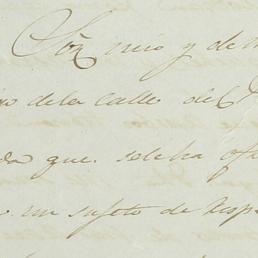 Sor. mio y de m
de la Calle de
que se le ha of
un sujeto de resp